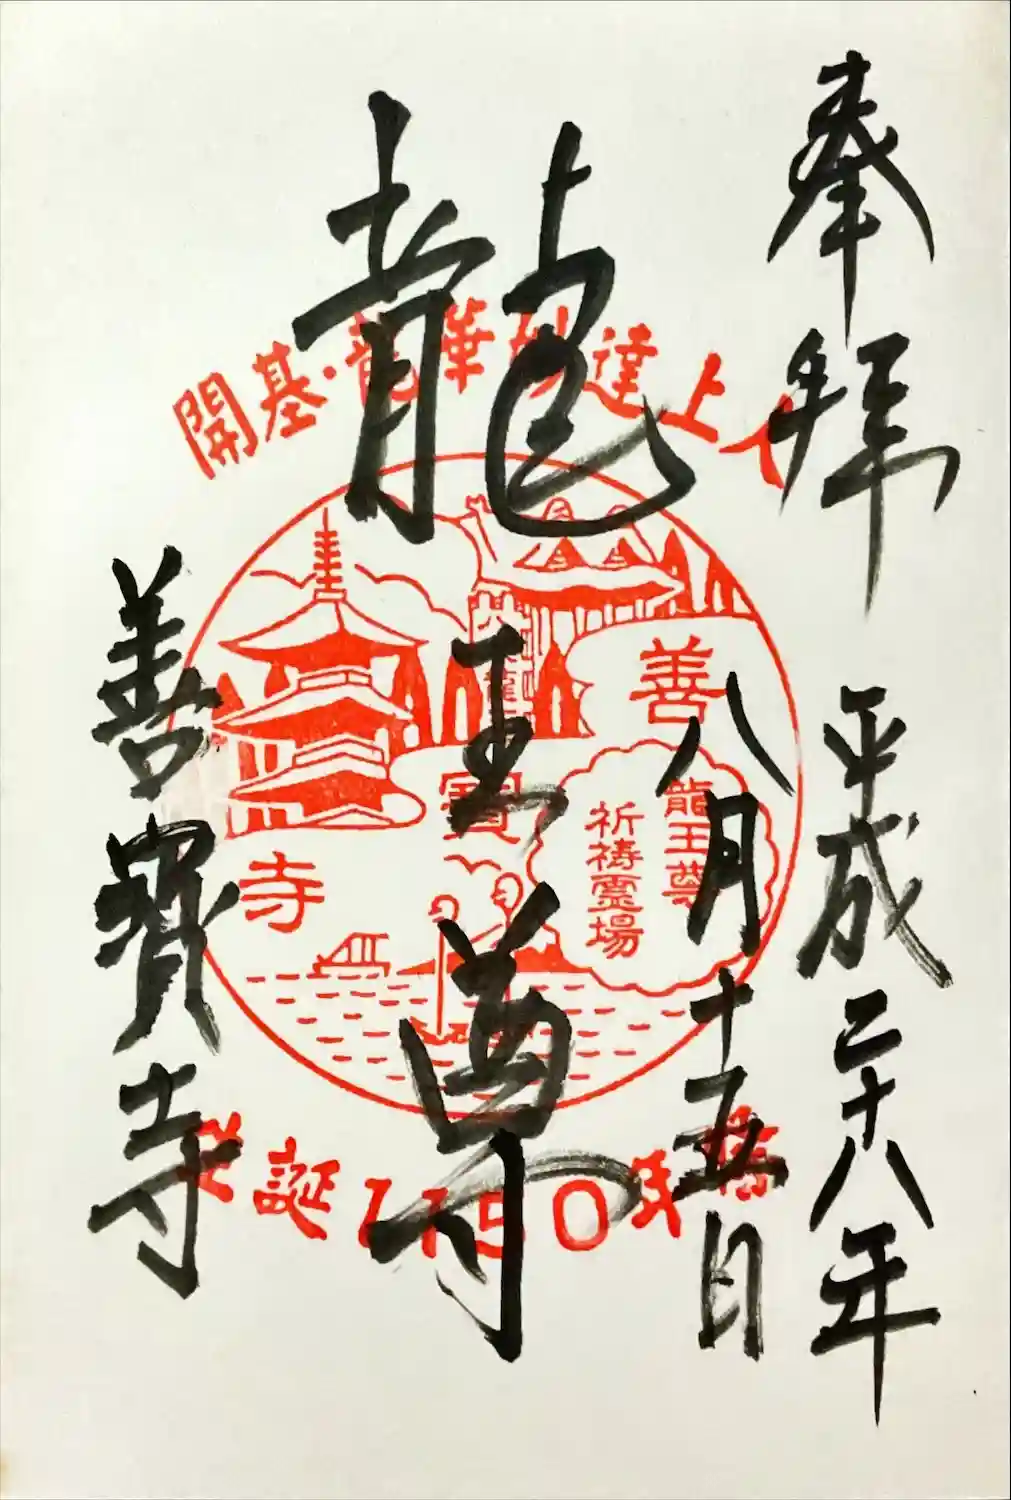 奉拝
平成二十六年
八月十五日
龍王尊
善寳寺
開基・龍華妙達上人
善
寳
寺
龍王尊
祈祷霊場
生誕1150年祭